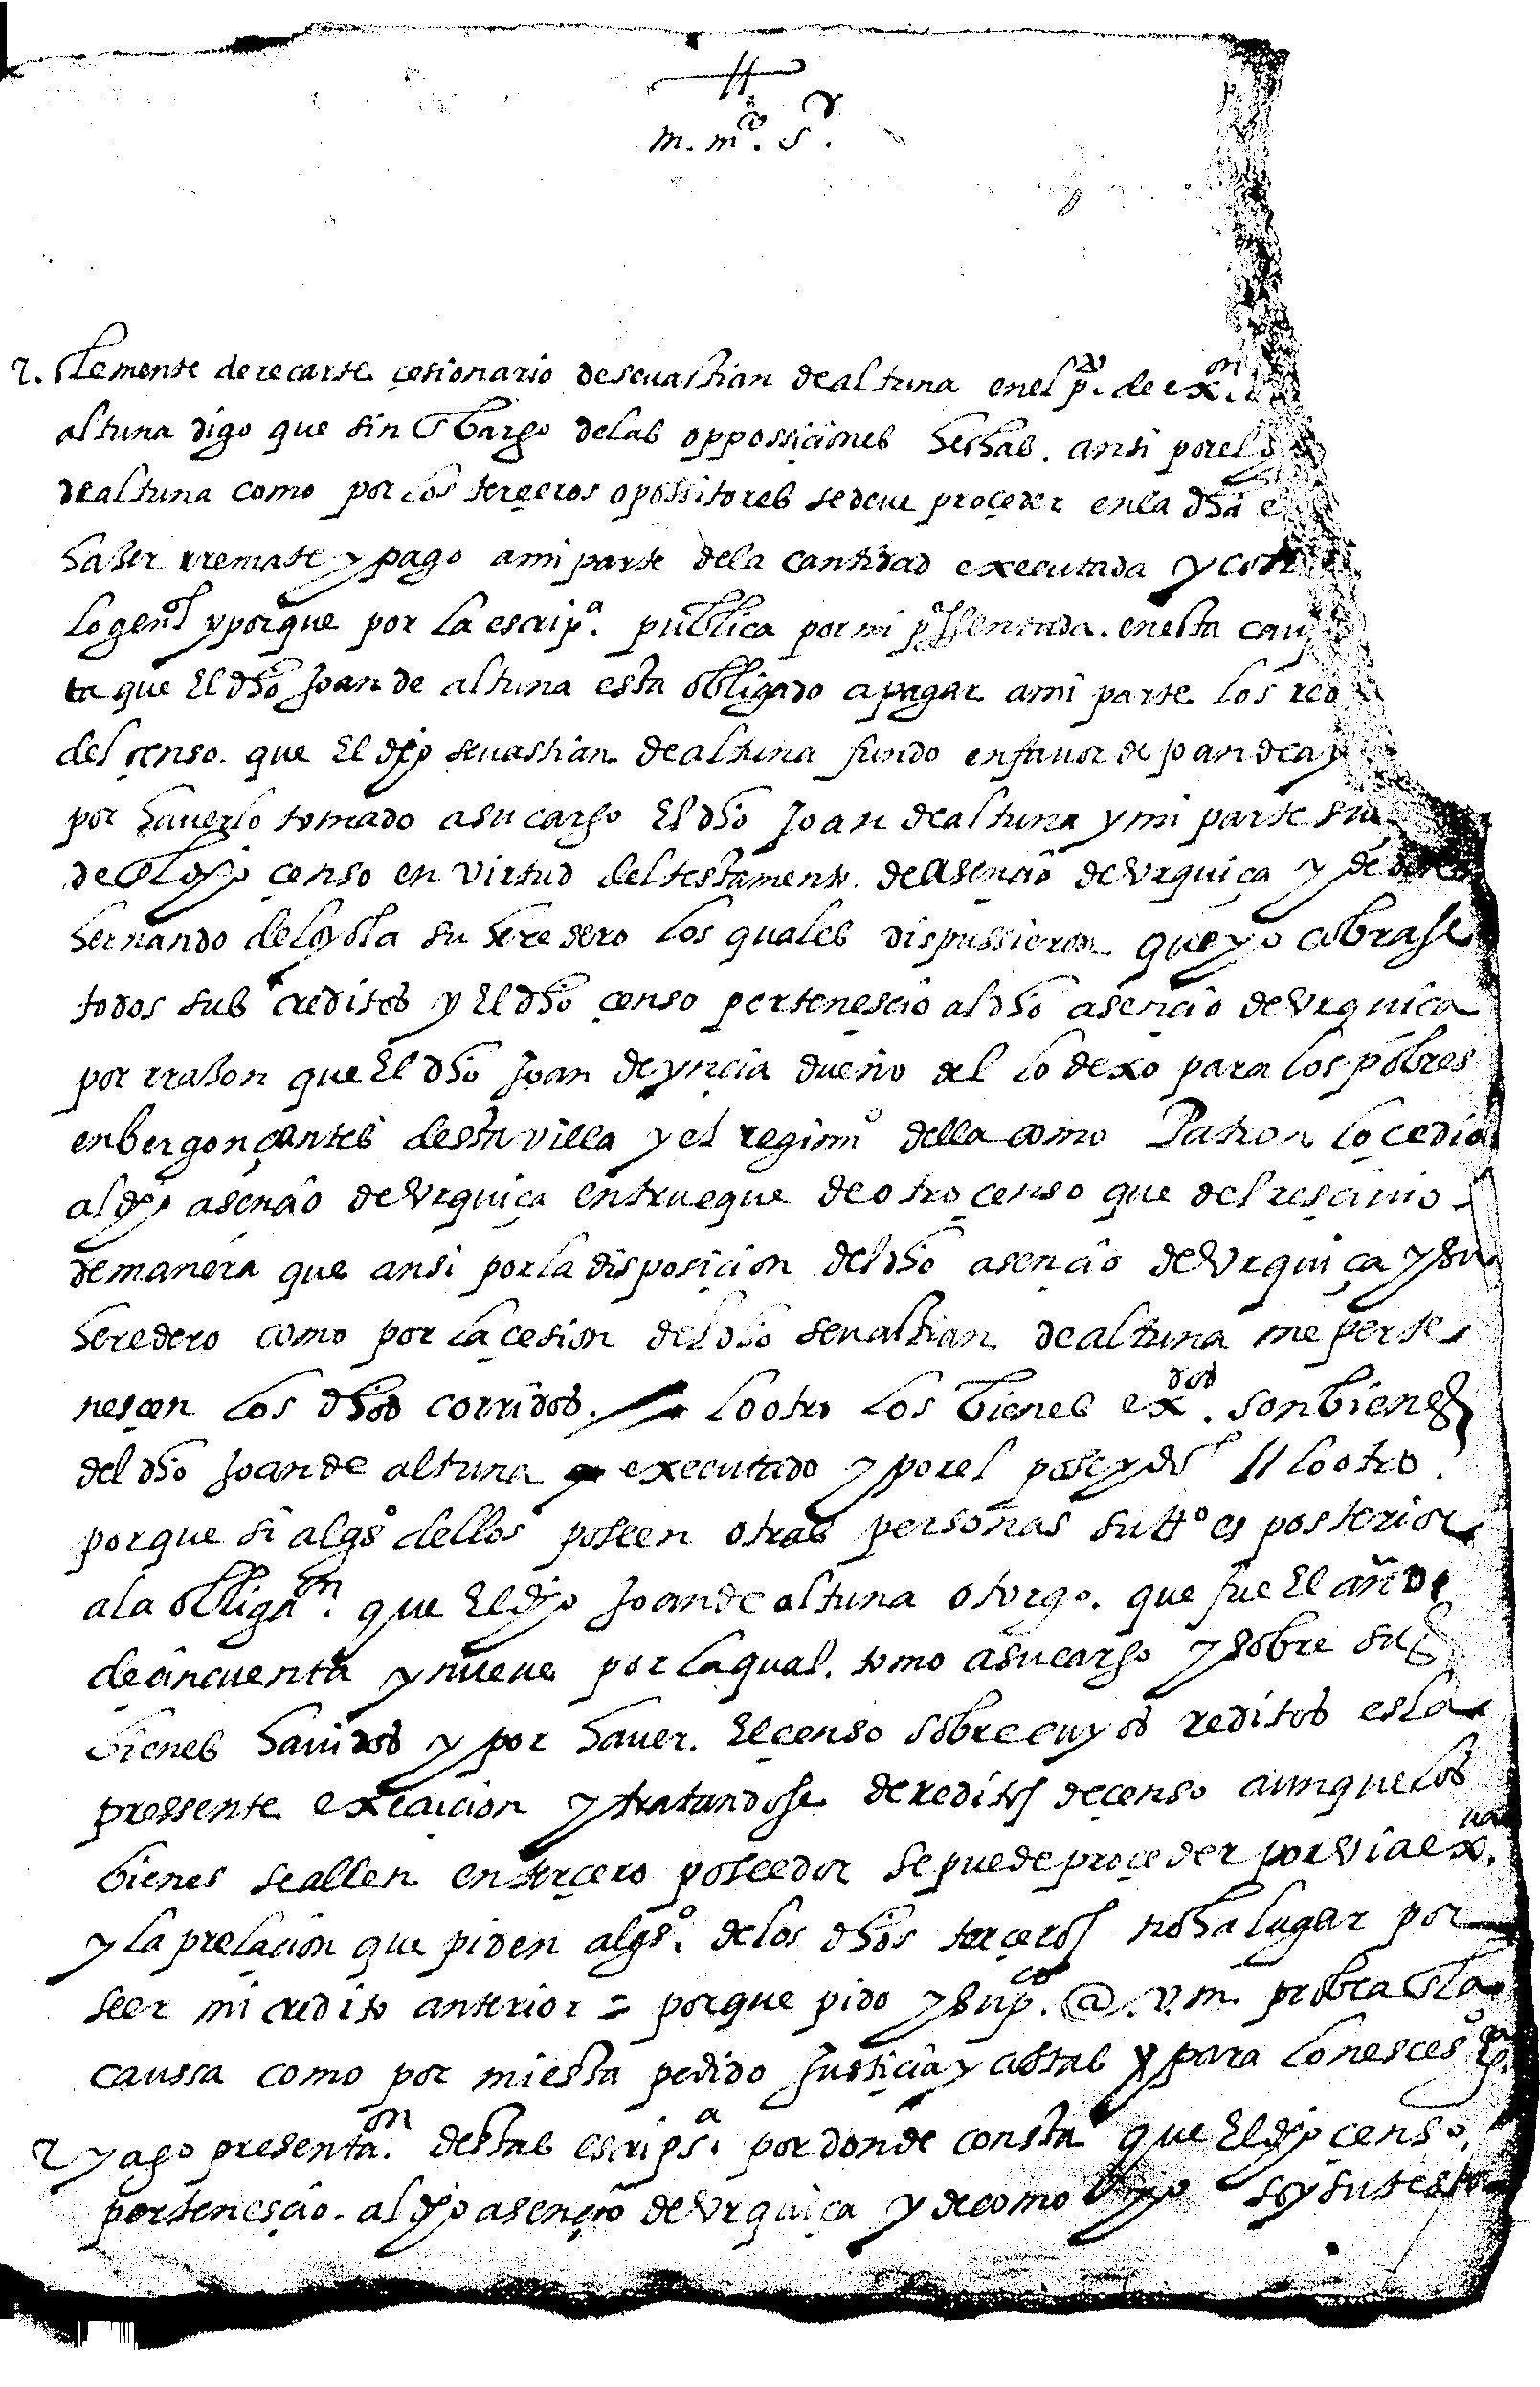 m. mco. sr.
Clemente de recarte çesionario de seuastian de altuna en el po. de exon.
altuna digo que sin Enbargo de las oppossiçiones hechas. ansi por el
de altuna como por los terçeros opossitores se deue proçeder en la dha e
hazer rremate y pago a mi parte de la cantidad executada y cost
lo genl y porque por la escripa. publica por mi pressentada. en esta cau
ta que El dho Joan de altuna esta obligado a pagar a mi parte los red
del çenso. que El dho seuastian de altuna fundo en fauor de joan de ay
por hauerlo tomado a su cargo El dho Joan de altuna y mi parte
del dho çenso en virtud del testamento. de Asençio de Vrquiça y de
hernando de loyola su heredero los quales dispussieron que yo cobrase
todos sus creditos y El dho çenso perteneşcio al dho asençio de Vrquiça
por rrazon que El dho Joan de ynçia dueño del lo dexo para los pobres
enbergonçantes desta villa y el regimo della como Patron lo cedio
al dho asençio de Vrquiça en trueque de otro çenso que del resçiuio
de manera que ansi por la disposiçion del dho asençio de Vrquiça y su
heredero como por la çesion del dho seuastian de altuna me perte
nesçen los dhos corridos. lo otro los bienes exdos. son bienes
del dho Joan de altuna executado y por el poseydos // lo otro.
porque si algos dellos poseen otras personas su tto es posterior
a la obligaon. que El dho Joan de altuna otorgo. que fue El año
de çincuenta y nueue por la qual. tomo a su cargo y sobre sus
bienes hauidos y por hauer. El çenso sobre cuyos reditos es la
pressente execuçion y tratandose de reditos de çenso aunque los
bienes se allen en terçero poseedor se puede proçeder por via exua.
y la prelaçion que piden algos. de los dhos terçeros no ha lugar por
seer mi credito anterior = porque pido y supco. @ v. m. probea En la
caussa como por mi esta pedido Justiçia y costas y para lo nesceso
y ago presentaon. destas escripsa. por donde consta que El dho çenso.
perteneşçio. al dho asençio de Vrquiça y de como yo soy su testa